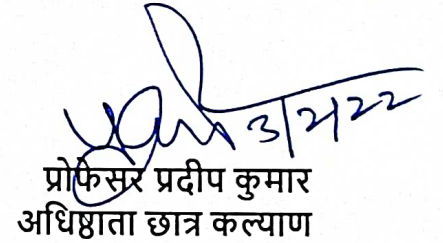 3/2/22
प्रोफेसर प्रदीप कुमार
अधिष्ठाता छात्र कल्याण